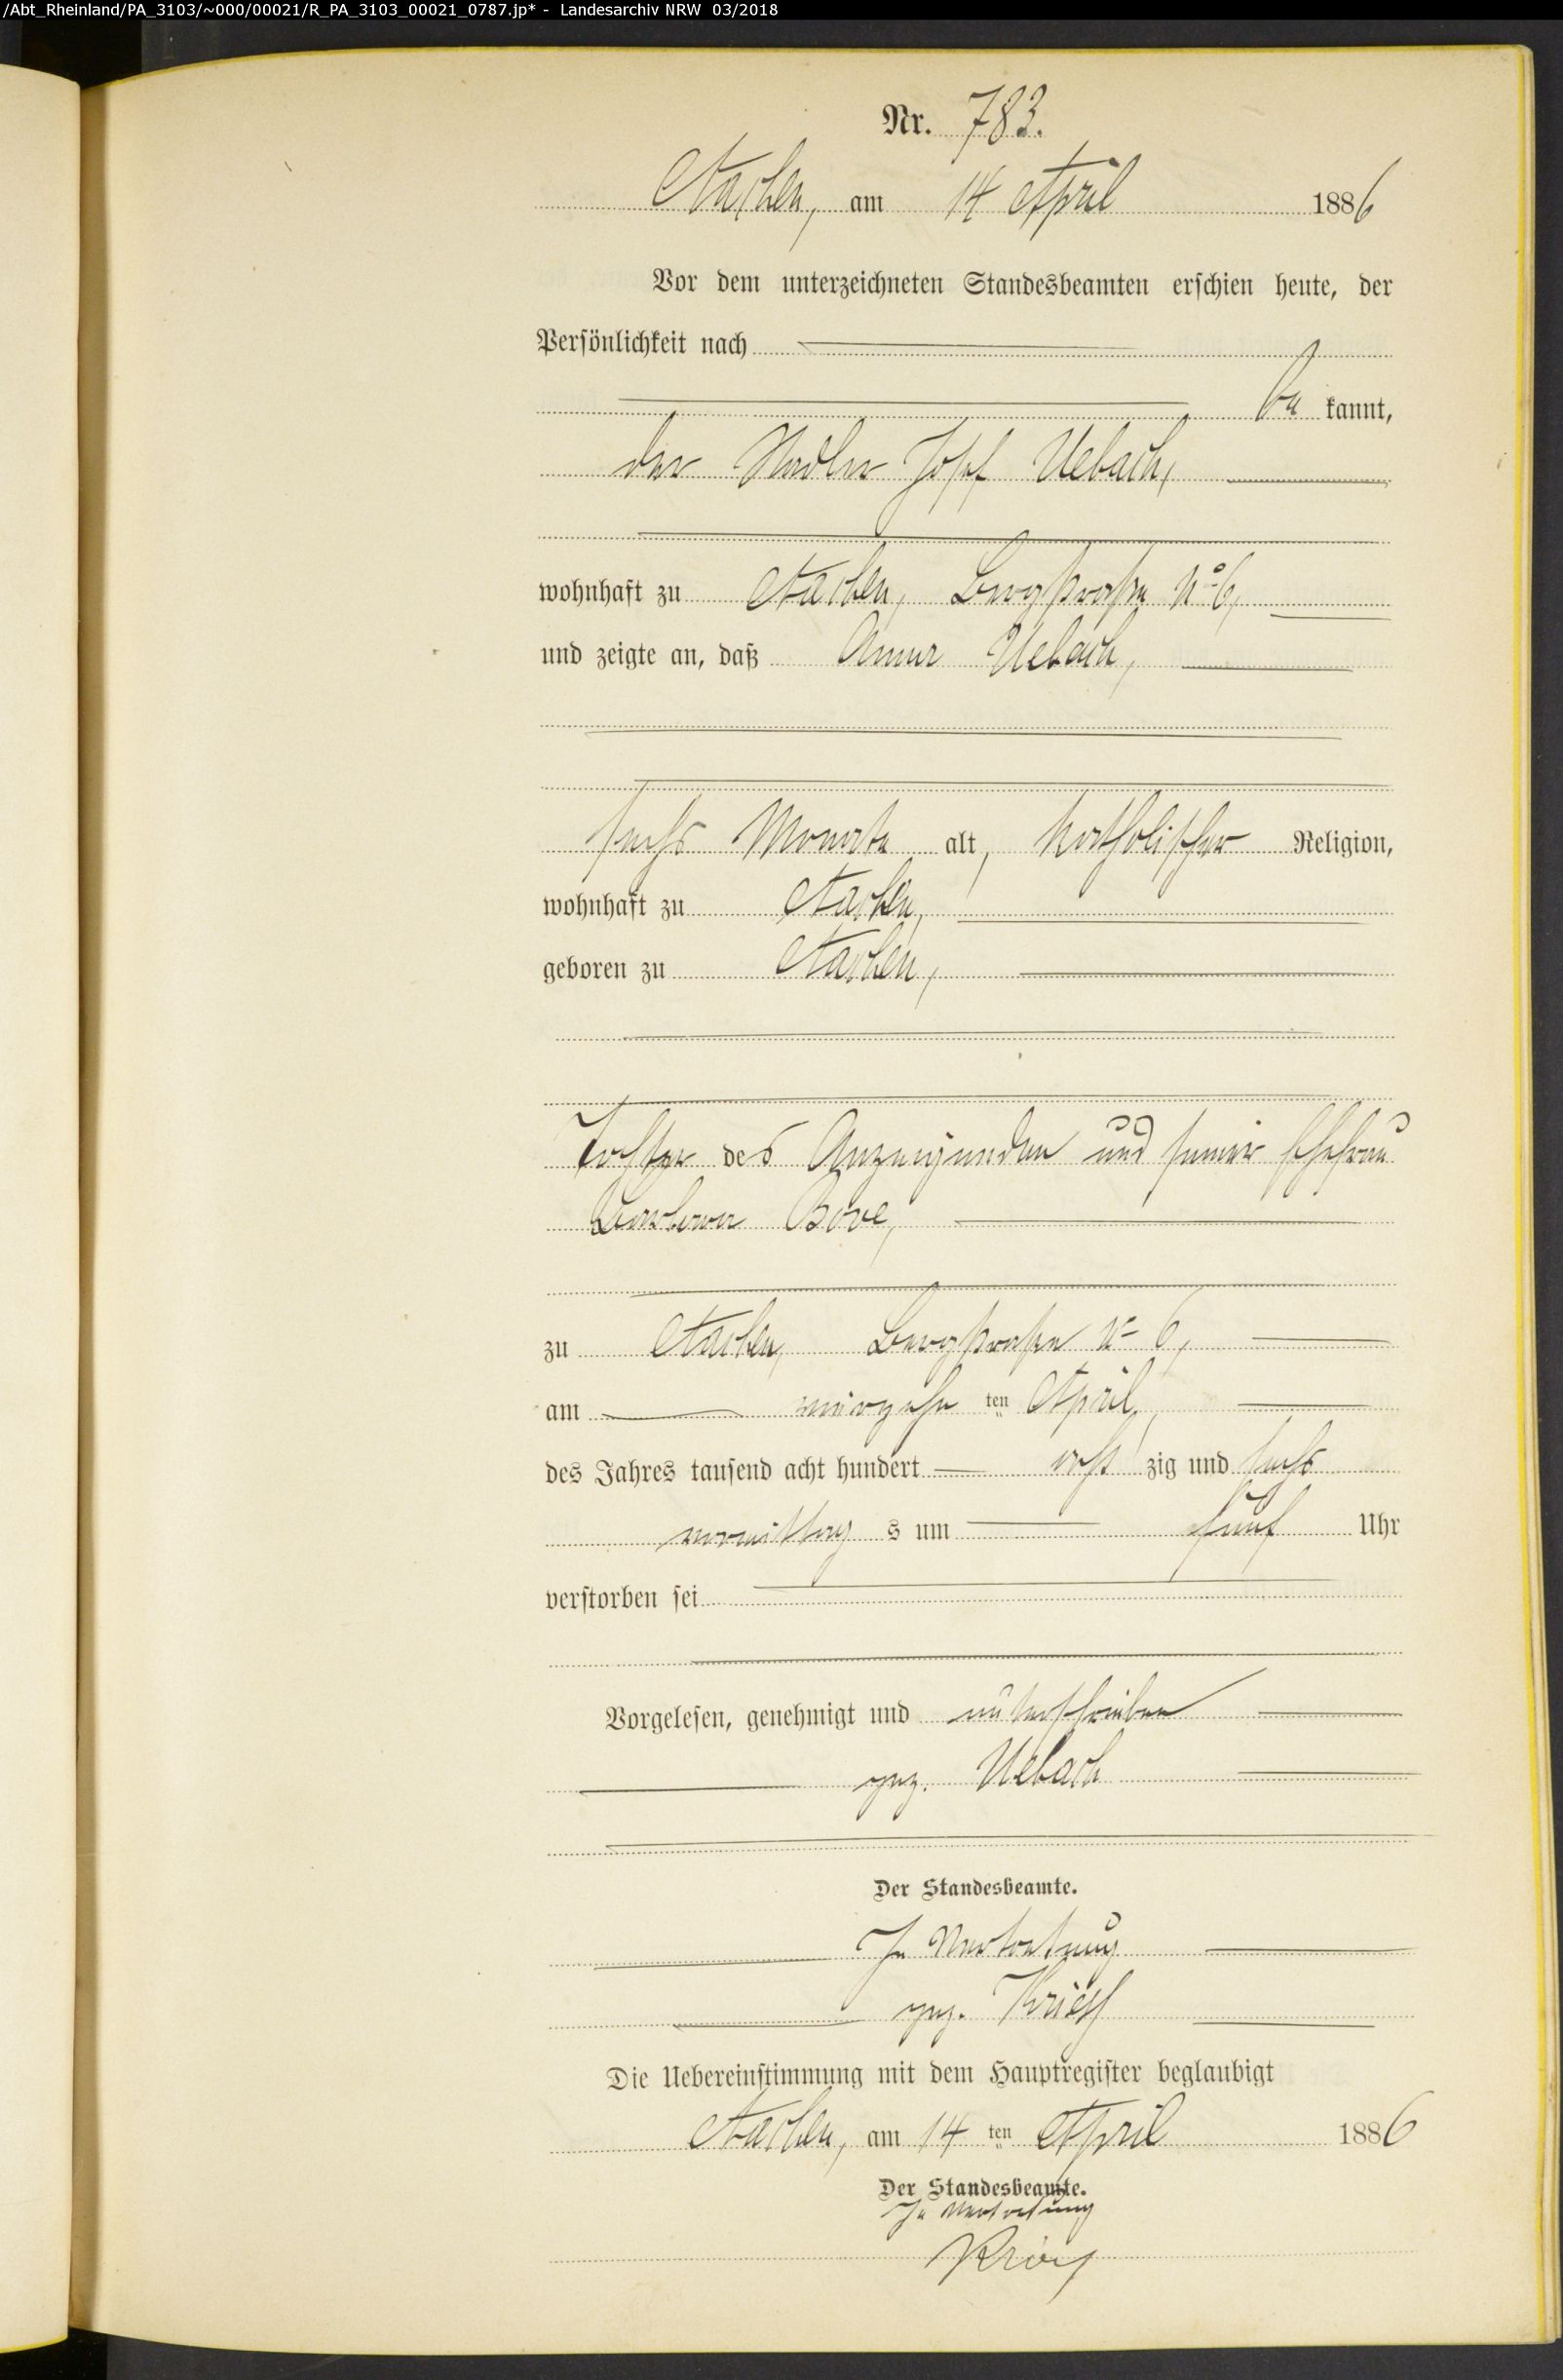 /Abt_Rheinland/PA_3103/~000/00021/R_PA_3103_00021_0787.jp* - Landesarchiv NRW 03/2018
Nr. 783.
Aachen, am 14 April 1886
Vor dem unterzeichneten Standesbeamten erschien heute, der
Persönlichkeit nach
be kannt,
der Nadler Josef Uebach,
wohnhaft zu Aachen, Bergstraße No 6,
und zeigte an, daß Anna Uebach,
sechs Monate alt, katholischer Religion,
wohnhaft zu Aachen,
geboren zu Aachen,
Tochter des Anzeigenden und seiner Ehefrau
Barbara Bove,
zu Aachen, Bergstraße No 6,
am vierzehn ten April,
des Jahres tausend acht hundert acht zig und sechs
vormittag s um fünf Uhr
verstorben sei
Vorgelesen, genehmigt und unterschrieben
gez. Uebach
Der Standesbeamte.
In Vertretung
gez.
Die Uebereinstimmung mit dem Hauptregister beglaubigt
Aachen, am 14 ten April 1886
Der Standesbeamte.
In Vertretung